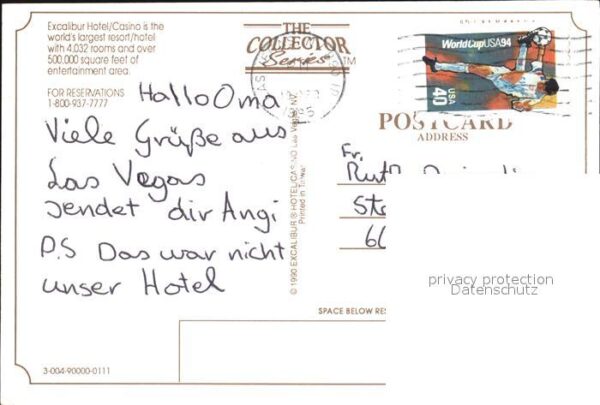 Excalibur Hotel/Casino is the
world's largest resort/hotel
with 4,032 rooms and over
500,000 square feet of
entertainment area.
FOR RESERVATIONS
1-800-937-7777
THE
COLLECTOR
Series™
World Cup USA 94
USA
40
POSTCARD
ADDRESS
Hallo Oma
Viele Grüße aus
Las Vegas
sendet dir Angi
P.S Das war nicht
unser Hotel
© 1990 EXCALIBUR ® HOTEL/CASINO Las Vegas, NV
Printed in Taiwan
Fr.
Ruth
privacy protection
Datenschutz
SPACE BELOW RES
3-004-90000-0111